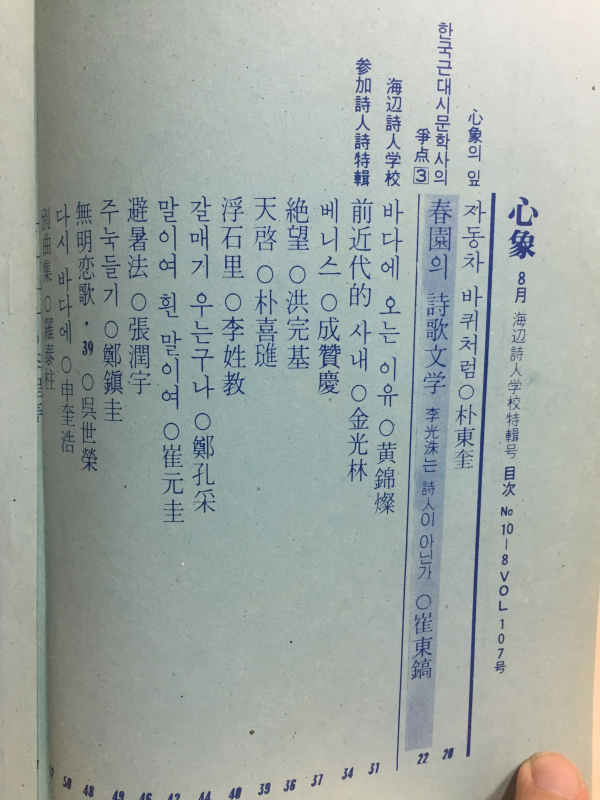 心象 8月 海辺詩人学校特輯号 目次 No 10-8 VOL 107号
心象의 잎
자동차 바퀴처럼 ○ 朴東奎 20
한국근대시문학사의
爭点 3
春園의 詩歌文学 李光洙는 詩人이 아닌가 ○ 崔東鎬 22
海辺詩人学校
参加詩人詩特輯
바다에 오는 이유 ○ 黄錦燦 31
前近代的 사내 ○ 金光林 34
베니스 ○ 成贊慶 37
絶望 ○ 洪完基 36
天啓 ○ 朴喜璡 39
浮石里 ○ 李姓教 40
갈매기 우는구나 ○ 鄭孔采 44
말이여 흰 말이여 ○ 崔元圭 42
避暑法 ○ 張潤宇 46
주눅들기 ○ 鄭鎭圭 49
無明恋歌·39 ○ 呉世榮 48
다시 바다에 ○ 申奎浩 50
別曲集 ○ 羅泰柱